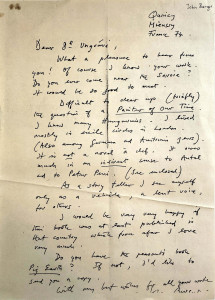 John Berger
Quincy
Mieussy
France 74
Dear Dr Ungvári,
What a pleasure to hear from
you! Of course I know your work.
Do you ever come near the Savoie?
It would be good to meet.
Difficult to clear up (briefly)
the question of a Painter of Our Time.
I had Hungarians - I lived
mostly in émigré circles in London
(Also among German and Austrian ones).
It is not a novel à clef. It owes
much in an indirect sense to Antal
and to Peter Peri. (See enclosed)
As a story teller I see myself
only as a vehicle, a lent voice,
for others.
I would be very very happy if
this book was at last published in
that country which from afar I love
very much.
Do you have the peasants book
Pig Earth? If not, I'd like to
send you a copy.
With my best wishes for all your work